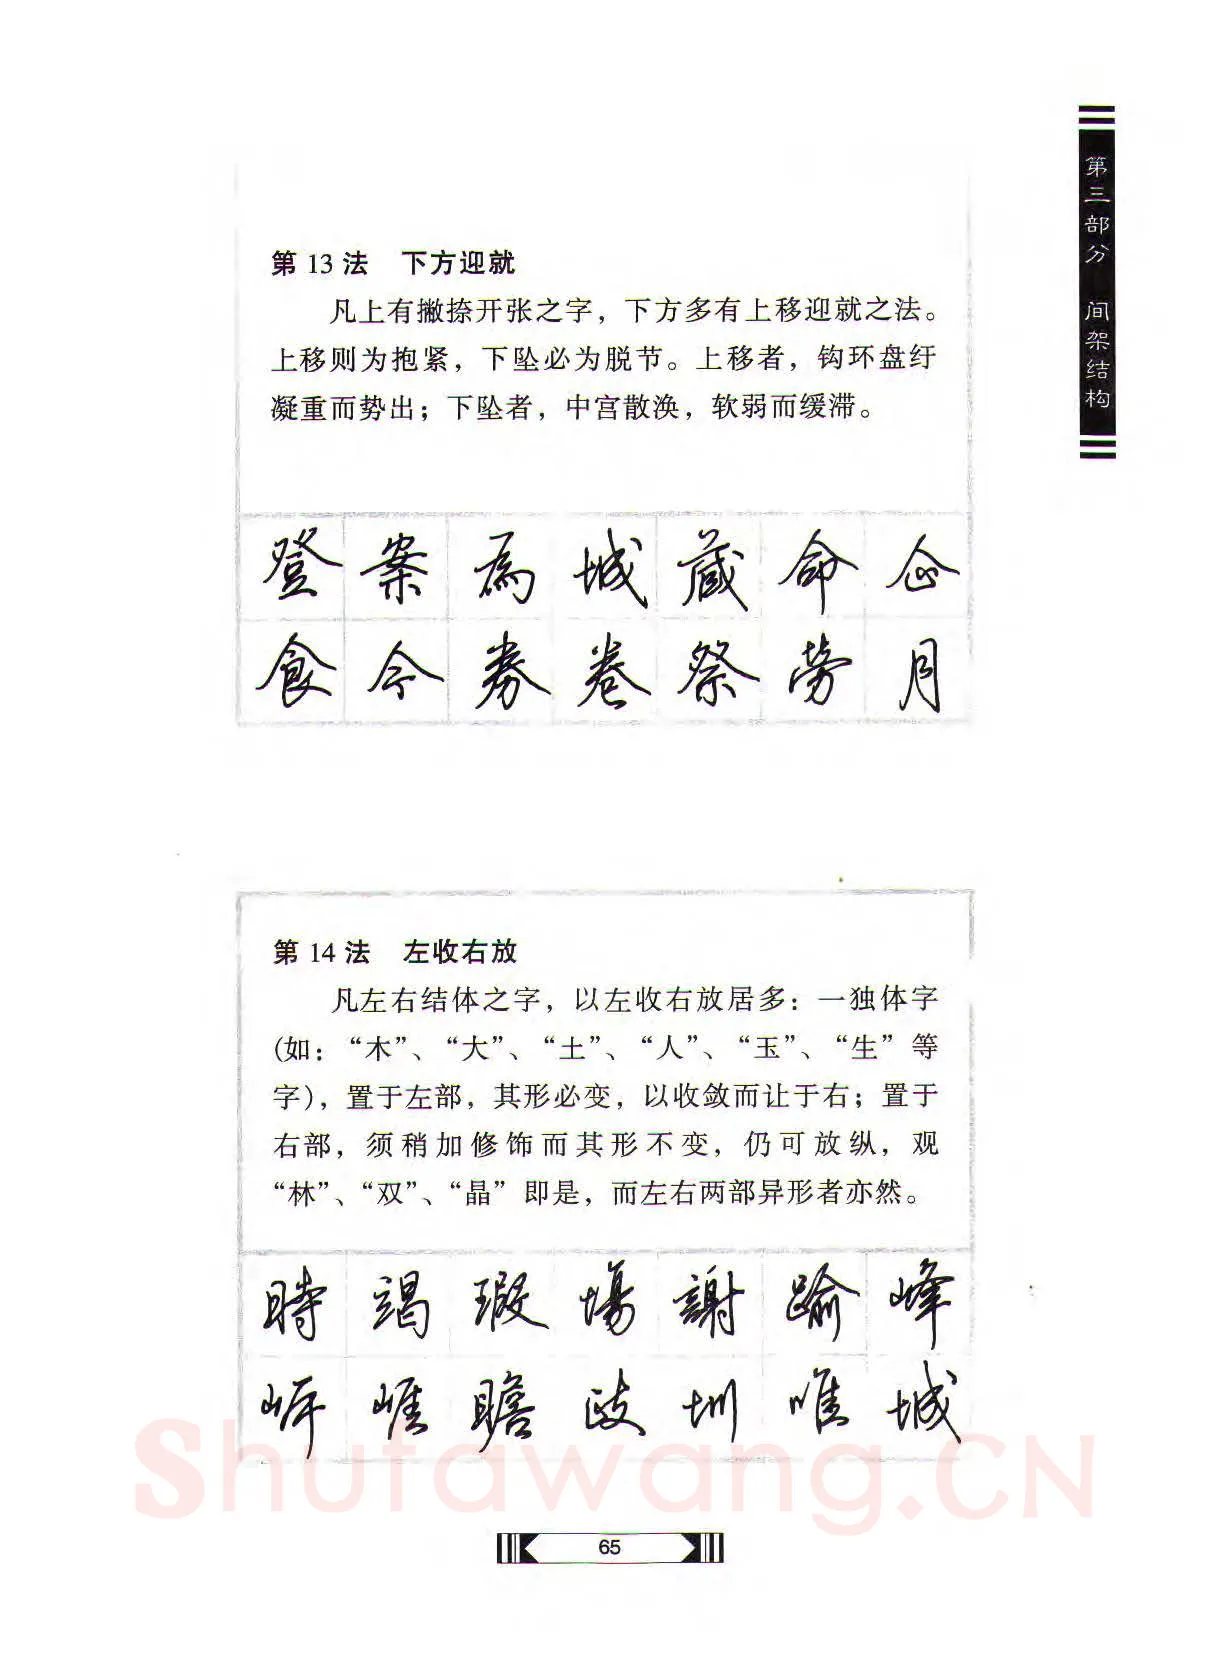 第三部分 间架结构
第 13 法 下方迎就
凡上有撇捺开张之字，下方多有上移迎就之法。
上移则为抱紧，下坠必为脱节。上移者，钩环盘纡
凝重而势出；下坠者，中宫散涣，软弱而缓滞。
登 案 為 城 藏 命 企
食 今 券 卷 祭 勞 月
第 14 法 左收右放
凡左右结体之字，以左收右放居多：一独体字
(如：“木”、“大”、“土”、“人”、“玉”、“生”等
字)，置于左部，其形必变，以收敛而让于右；置于
右部，须稍加修饰而其形不变，仍可放纵，观
“林”、“双”、“晶”即是，而左右两部异形者亦然。
時 竭 瑕 場 謝 踰 峰
崖 瞻 歧 圳 唯 城
Shufawang.CN
65